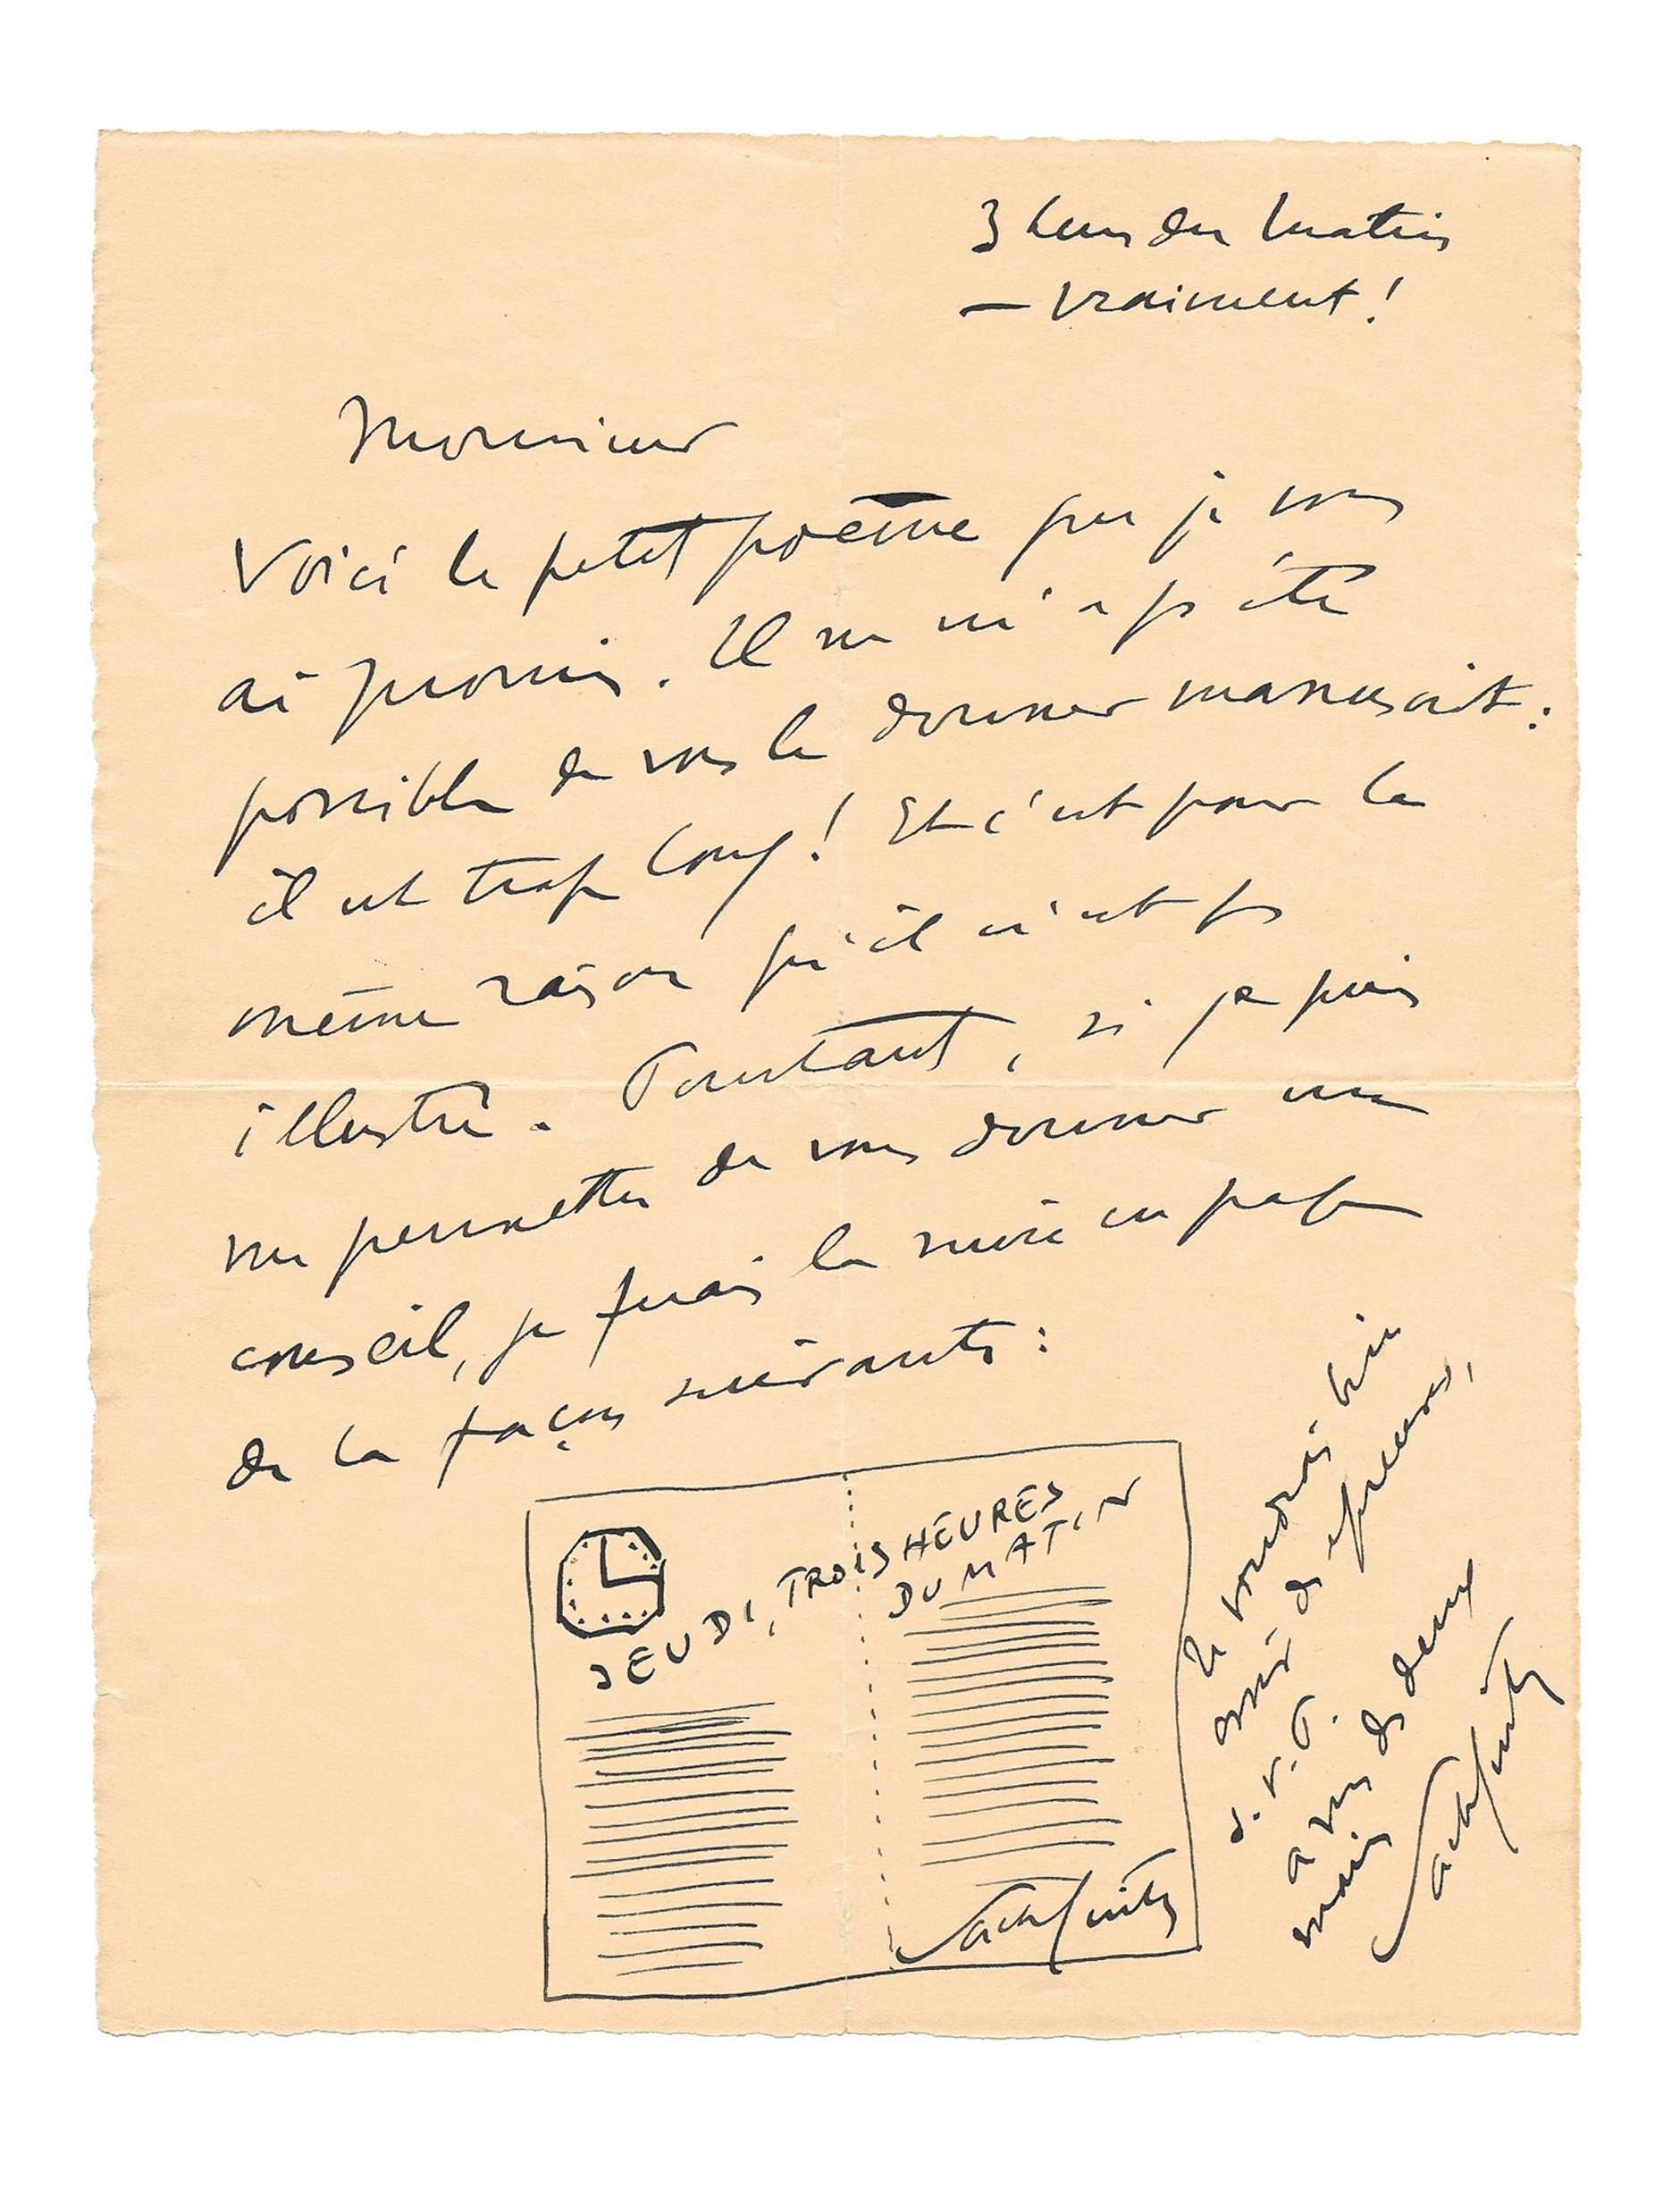 3 heures du matin
— vraiment !
Monsieur
Voici le petit poème que je vous
ai promis. Il ne m'a pas été
possible de vous le donner manuscrit :
il est trop long ! Et c'est pour la
même raison qu'il n'est pas
illustré. Pourtant, si je puis
me permettre de vous donner un
conseil, je ferais la mise en page
de la façon suivante :
JEUDI, TROIS HEURES
DU MATIN
Sacha Guitry
Je voudrais bien
avoir des épreuves,
s.v.P.
à vous des deux
mains
Sacha Guitry